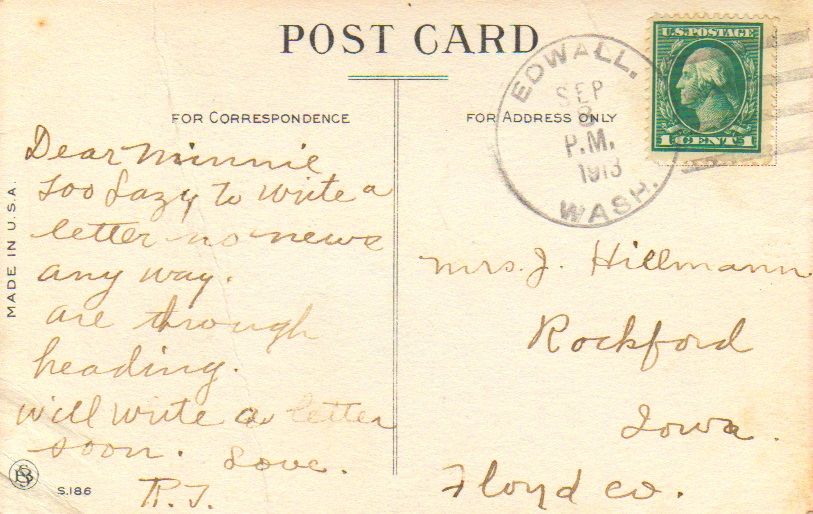 POST CARD
FOR CORRESPONDENCE
FOR ADDRESS ONLY
EDWALL.
SEP
8
P.M.
1913
WASH.
U.S. POSTAGE
1 CENT 1
MADE IN U.S.A.
Dear Minnie
Too Lazy to write a
letter no news
any way.
are through
heading.
will write a letter
soon. Love.
Mrs. J. Hillmann
Rockford
Iowa.
Floyd co.
S.186